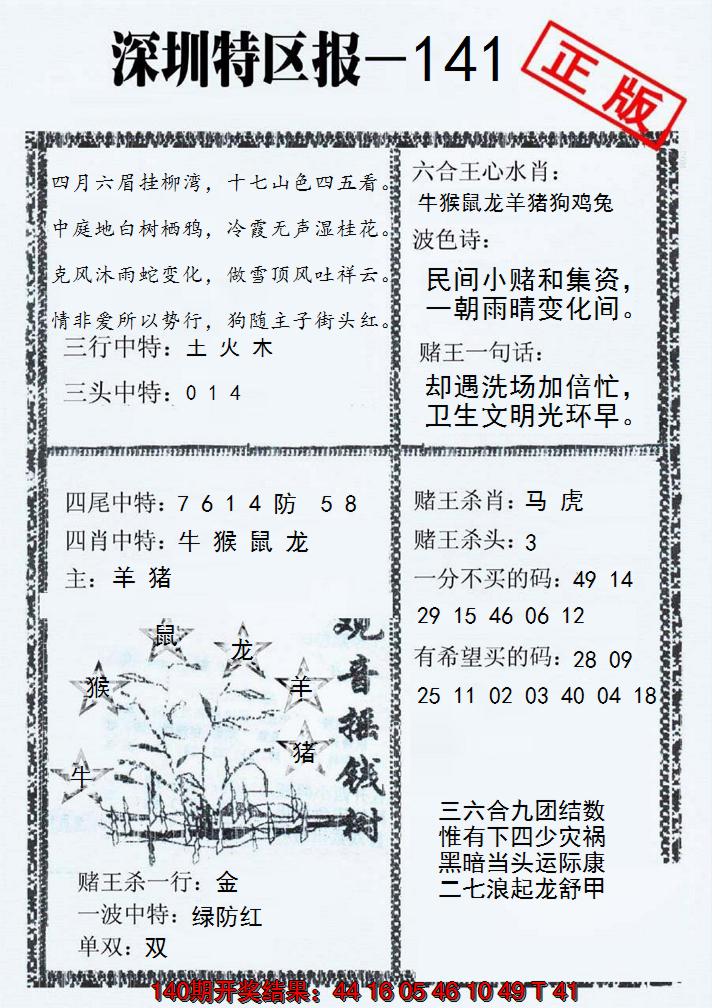 深圳特区报-141
正版
四月六眉挂柳湾，十七山色四五看。
中庭地白树栖鸦，冷霞无声湿桂花。
克风沐雨蛇变化，做雪顶风吐祥云。
情非爱所以势行，狗随主子街头红。
三行中特：土 火 木
三头中特：0 1 4
六合王心水肖：
牛猴鼠龙羊猪狗鸡兔
波色诗：
民间小赌和集资，
一朝雨晴变化间。
赌王一句话：
却遇洗场加倍忙，
卫生文明光环早。
四尾中特：7 6 1 4 防 5 8
四肖中特：牛 猴 鼠 龙
主：羊 猪
鼠
龙
猴
羊
猪
牛
观音摇钱树
赌王杀一行：金
一波中特：绿防红
单双：双
赌王杀肖：马 虎
赌王杀头：3
一分不买的码：49 14
29 15 46 06 12
有希望买的码：28 09
25 11 02 03 40 04 18
三六合九团结数
惟有下四少灾祸
黑暗当头运际康
二七浪起龙舒甲
140期开奖结果：44 16 05 46 10 49 T 41